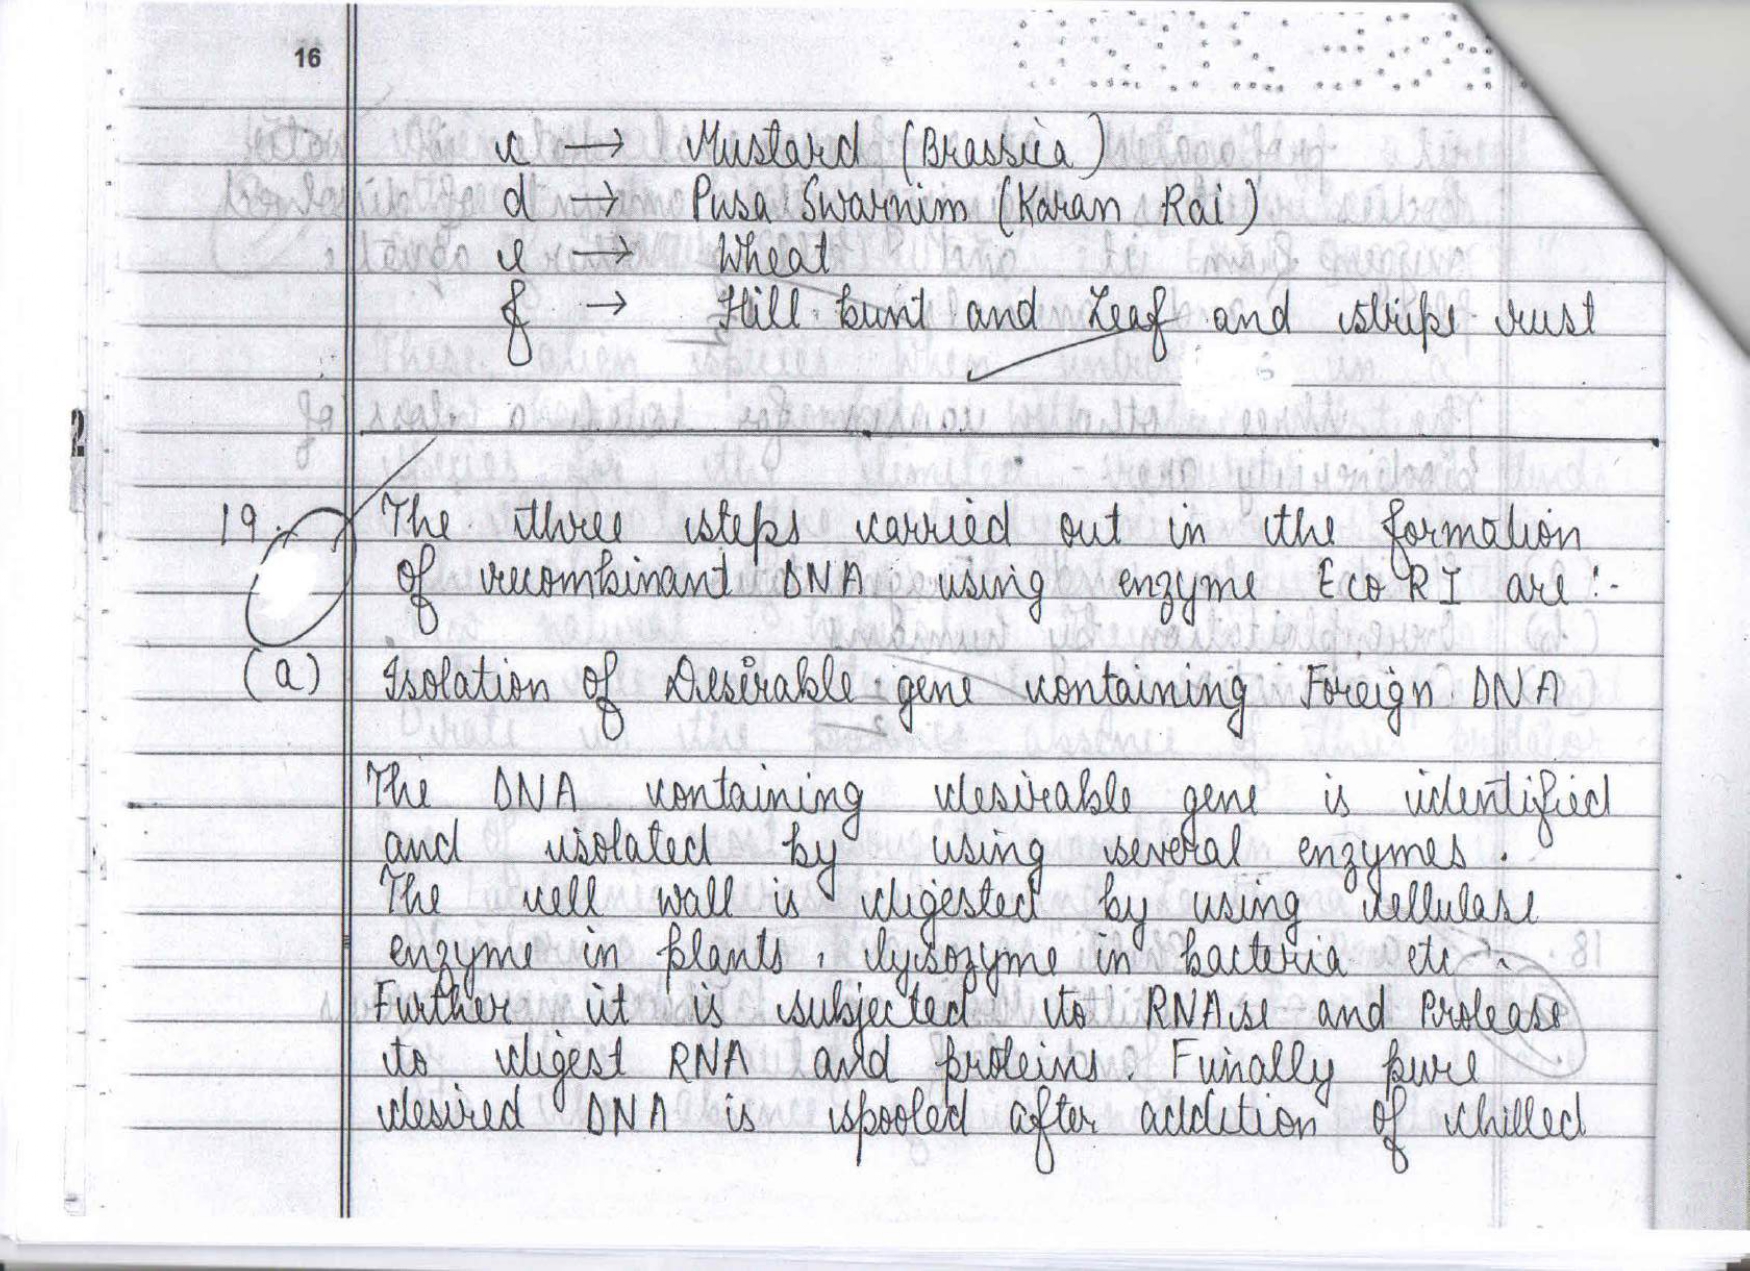 16
c → Mustard (Brassica)
d → Pusa Swarnim (Karan Rai)
e → Wheat
f → Hill bunt and Leaf and stripe rust
19. The three steps carried out in the formation
of recombinant DNA using enzyme Eco RI are :-
(a) Isolation of Desirable gene containing Foreign DNA
The DNA containing desirable gene is identified
and isolated by using several enzymes.
The cell wall is digested by using cellulase
enzyme in plants, lysozyme in bacteria etc.
Further it is subjected to RNAse and Protease
to digest RNA and proteins. Finally pure
desired DNA is spooled after addition of chilled